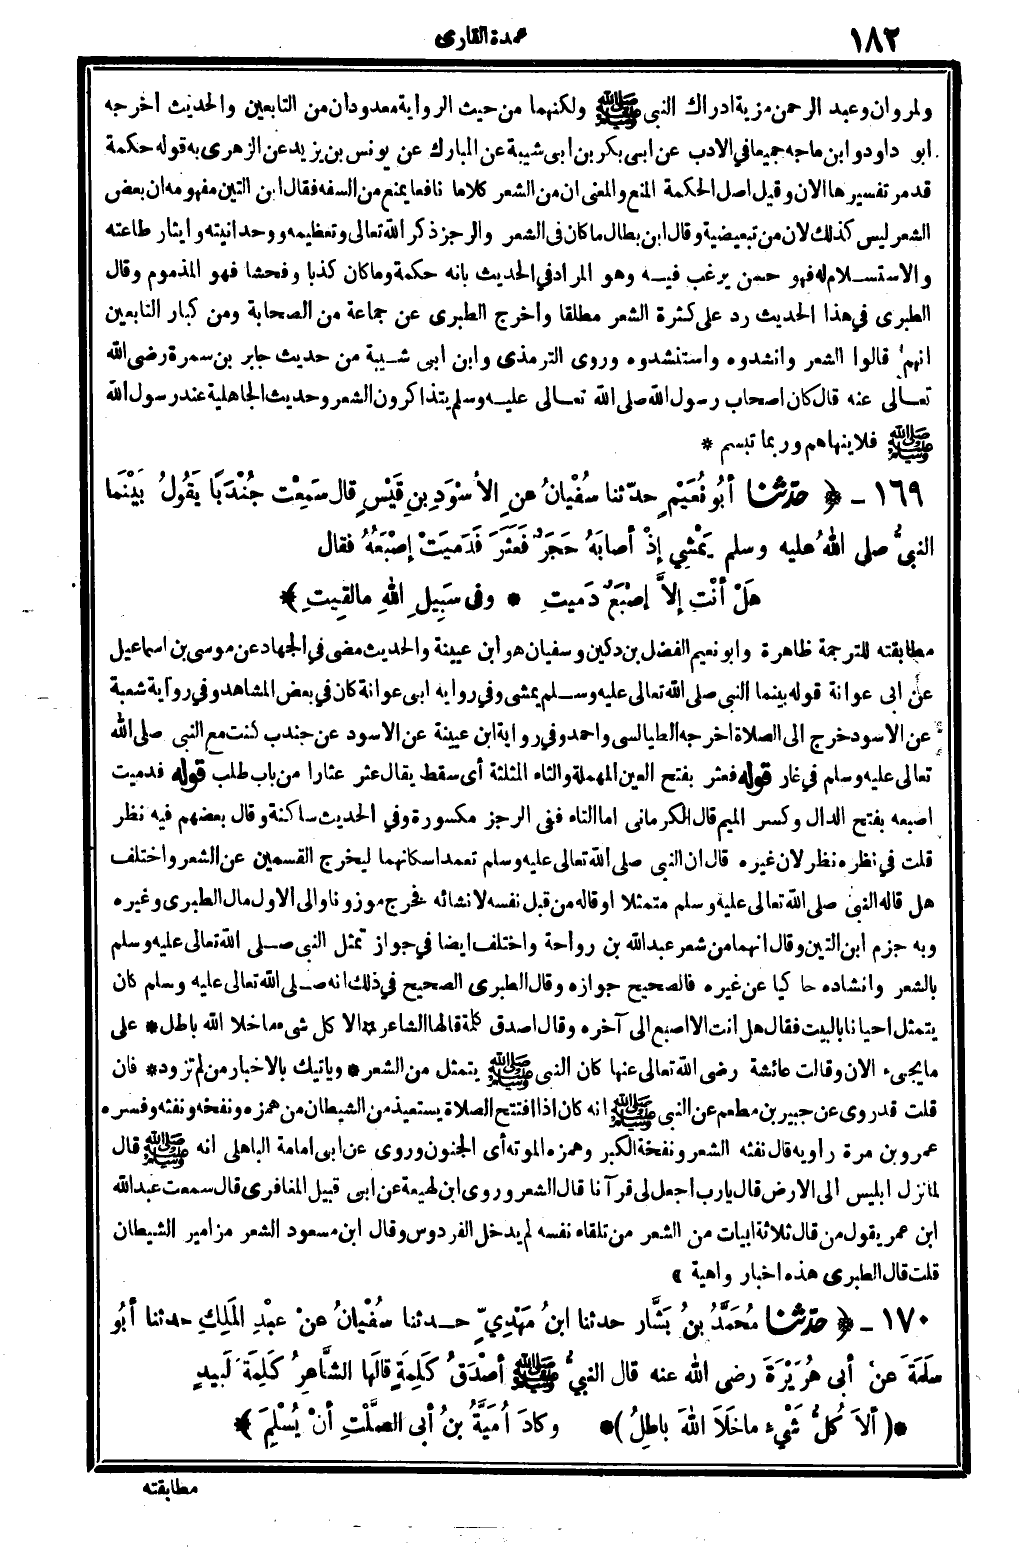 ١٨٢
عمدة القارى
ولمروان وعبد الرحمن مزية ادراك النبي ﷺ ولكنهما من حيث الرواية معدودان من التابعين والحديث اخرجه
ابو داود وابن ماجه جميعا في الادب عن ابى بكر بن ابى شيبة عن المبارك عن يونس بن يزيد عن الزهرى به قوله حكمة
قد مر تفسيرها الان وقيل اصل الحكمة المنع والمعنى ان من الشعر كلاما نافعا يمنع من السفه فقال ابن التين مفهومه ان بعض
الشعر ليس كذلك لان من تبعيضية وقال ابن بطال ما كان فى الشعر والرجز ذكر الله تعالى وتعظيمه ووحدانيته وايثار طاعته
والاستسلام له فهو حسن يرغب فيه وهو المراد في الحديث بانه حكمة وما كان كذبا وفحشا فهو المذموم وقال
الطبرى في هذا الحديث رد على كثرة الشعر مطلقا واخرج الطبرى عن جماعة من الصحابة ومن كبار التابعين
انهم قالوا الشعر وانشدوه واستنشدوه وروى الترمذى وابن ابى شيبة من حديث جابر بن سمرة رضى الله
تعالى عنه قال كان اصحاب رسول الله صلى الله تعالى عليه وسلم يتذاكرون الشعر وحديث الجاهلية عند رسول الله
ﷺ فلا ينهاهم وربما تبسم *
١٦٩ - ﴿ حدّثنا أبُو نُعَيْمٍ حدّثنا سُفْيانُ عنِ الأسْوَدِ بنِ قَيْسٍ قال سَمِعْت جُنْدَبًا يَقُولُ بَيْنَما
النبيُّ صلى اللهُ عليه وسلم يَمْشِي إذْ أصابَهُ حَجَرٌ فَعَثَرَ فَدَمِيَتْ إصْبَعُهُ فقال
هَلْ أنْتِ إلاَّ إصْبَعٌ دَمِيتِ * وفى سَبِيلِ اللهِ مالَقِيتِ ﴾
مطابقته للترجمة ظاهرة وابو نعيم الفضل بن دكين وسفيان هو ابن عيينة والحديث مضى في الجهاد عن موسى بن اسماعيل
عن ابى عوانة قوله بينما النبي صلى الله تعالى عليه وسلم يمشى وفي رواية ابى عوانة كان في بعض المشاهد وفي رواية شعبة
عن الاسود خرج الى الصلاة اخرجه الطيالسى واحمد وفي رواية ابن عيينة عن الاسود عن جندب كنت مع النبي صلى الله
تعالى عليه وسلم في غار قوله فعثر بفتح العين المهملة والثاء المثلثة أى سقط يقال عثر عثارا من باب طلب قوله فدميت
اصبعه بفتح الدال وكسر الميم قال الكرمانى اما التاء ففى الرجز مكسورة وفي الحديث ساكنة وقال بعضهم فيه نظر
قلت في نظره نظر لان غيره قال ان النبى صلى الله تعالى عليه وسلم تعمد اسكانهما ليخرج القسمين عن الشعر واختلف
هل قاله النبى صلى الله تعالى عليه وسلم متمثلا او قاله من قبل نفسه لانشائه فخرج موزونا والى الاول مال الطبرى وغيره
وبه جزم ابن التين وقال انهما من شعر عبد الله بن رواحة واختلف ايضا في جواز تمثل النبى صلى الله تعالى عليه وسلم
بالشعر وانشاده حاكيا عن غيره فالصحيح جوازه وقال الطبرى الصحيح في ذلك انه صلى الله تعالى عليه وسلم كان
يتمثل احيانا بالبيت فقال هل انت الا اصبع الى آخره وقال اصدق كلمة قالها الشاعر * الا كل شىء ما خلا الله باطل * على
ما يجىء الان وقالت عائشة رضى الله تعالى عنها كان النبى ﷺ يتمثل من الشعر * وياتيك بالاخبار من لم تزود * فان
قلت قد روى عن جبير بن مطعم عن النبى ﷺ انه كان اذا افتتح الصلاة يستعيذ من الشيطان من همزه ونفخه ونفثه وفسره
عمرو بن مرة راويه قال نفثه الشعر ونفخة الكبر وهمزه الموته أى الجنون وروى عن ابى امامة الباهلى انه ﷺ قال
لما نزل ابليس الى الارض قال يارب اجعل لى قرآنا قال الشعر وروى ابن لهيعة عن ابى قبيل المغافرى قال سمعت عبد الله
ابن عمر يقول من قال ثلاثة ابيات من الشعر من تلقاه نفسه لم يدخل الفردوس وقال ابن مسعود الشعر مزامير الشيطان
قلت قال الطبرى هذه اخبار واهية ﴾
١٧٠ - ﴿ حدّثنا مُحَمَّدُ بنُ بَشَّار حدثنا ابنُ مَهْدِيٍّ حدثنا سُفْيانُ عنْ عبْدِ المَلِكِ حدثنا أبُو
سَلَمَةَ عنْ أبى هُرَيْرَةَ رضى الله عنه قال النبيُّ ﷺ أصْدَقُ كَلِمَةٍ قالَها الشَّاعِرُ كَلِمَةُ لَبِيدٍ
* ( ألاَ كُلُّ شَيْءٍ ماخَلاَ اللهَ باطِلُ ) * وكادَ أُمَيَّةُ بنُ أبى الصَّلْتِ أنْ يُسْلِمَ ﴾
مطابقته